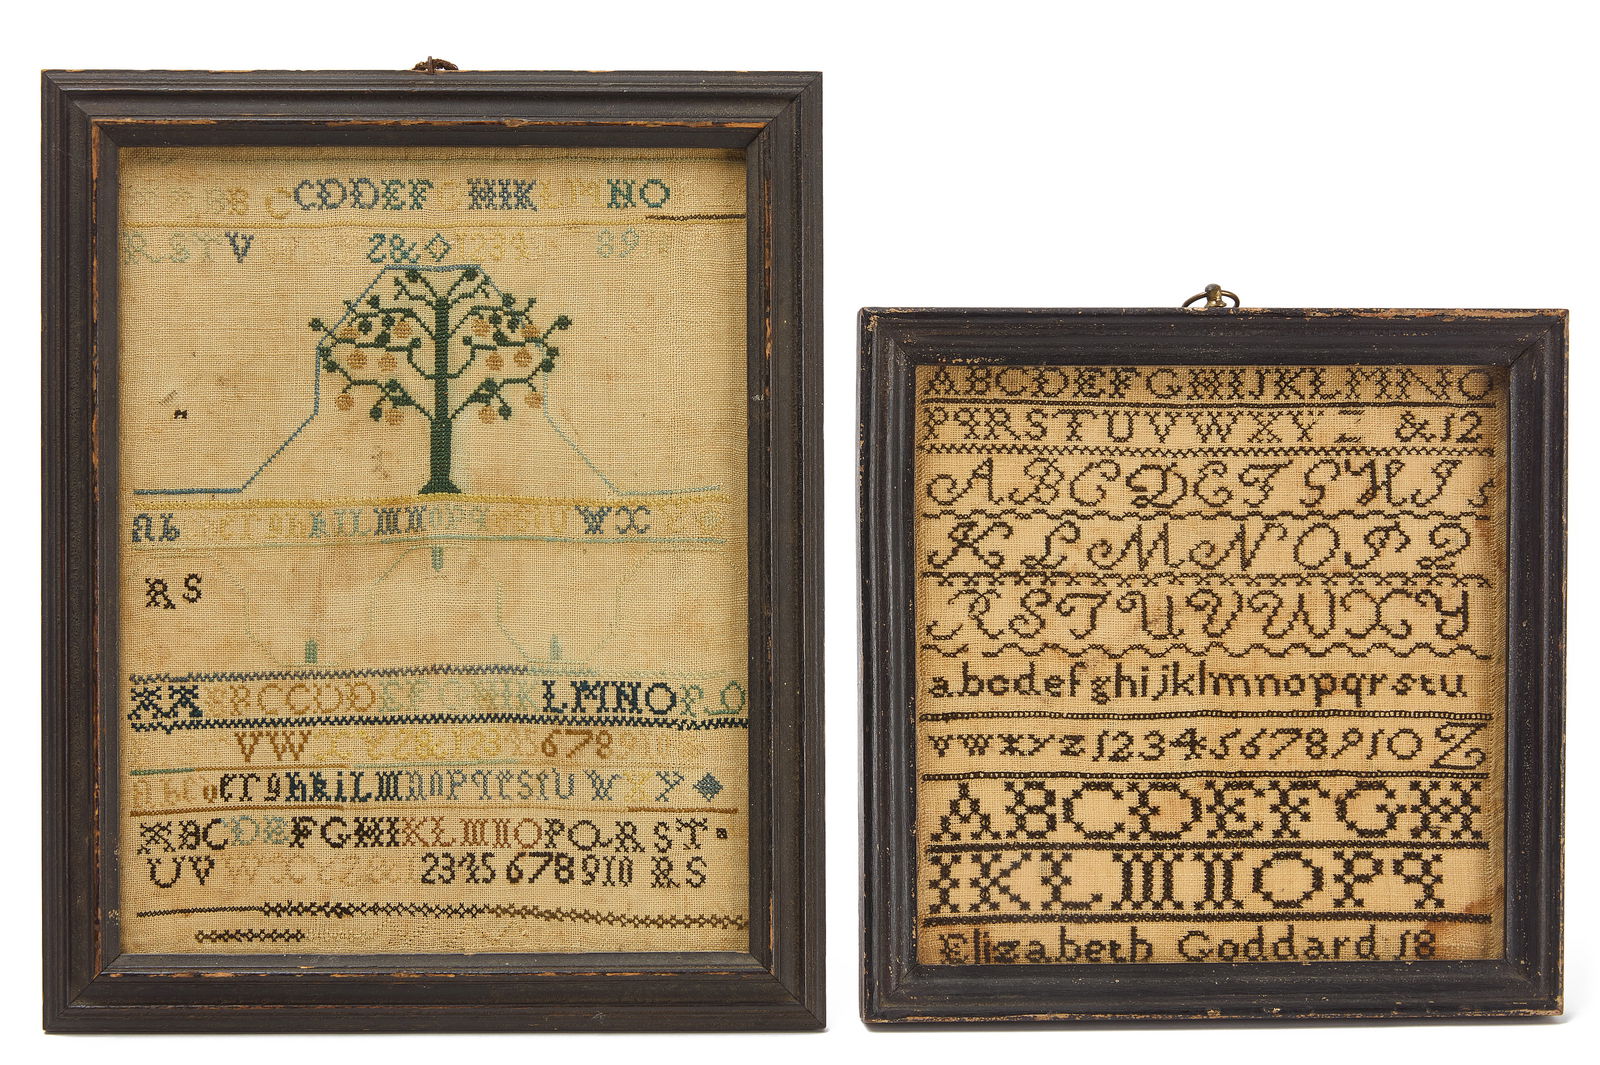 B C CDDEF G HIK LMNO
RSTV Z& 1234 89
ab efghhiklmnopq UWX
RS
AABBCCDDEF HIKLMNOPQ
VW XYZ& 12345678910
abcdefghhiklmnopqrstuwxy
ABCDEFGHIKLMNOPQRST
UVWXYZ&12345678910 RS
ABCDEFGHIJKLMNO
PQRSTUVWXYZ &12
ABCDEFGHI
KLMNOPQ
RSTUVWXY
abcdefghijklmnopqrstu
vwxyz12345678910 Z
ABCDEFGH
IKLMNOPQ
Elizabeth Goddard 18